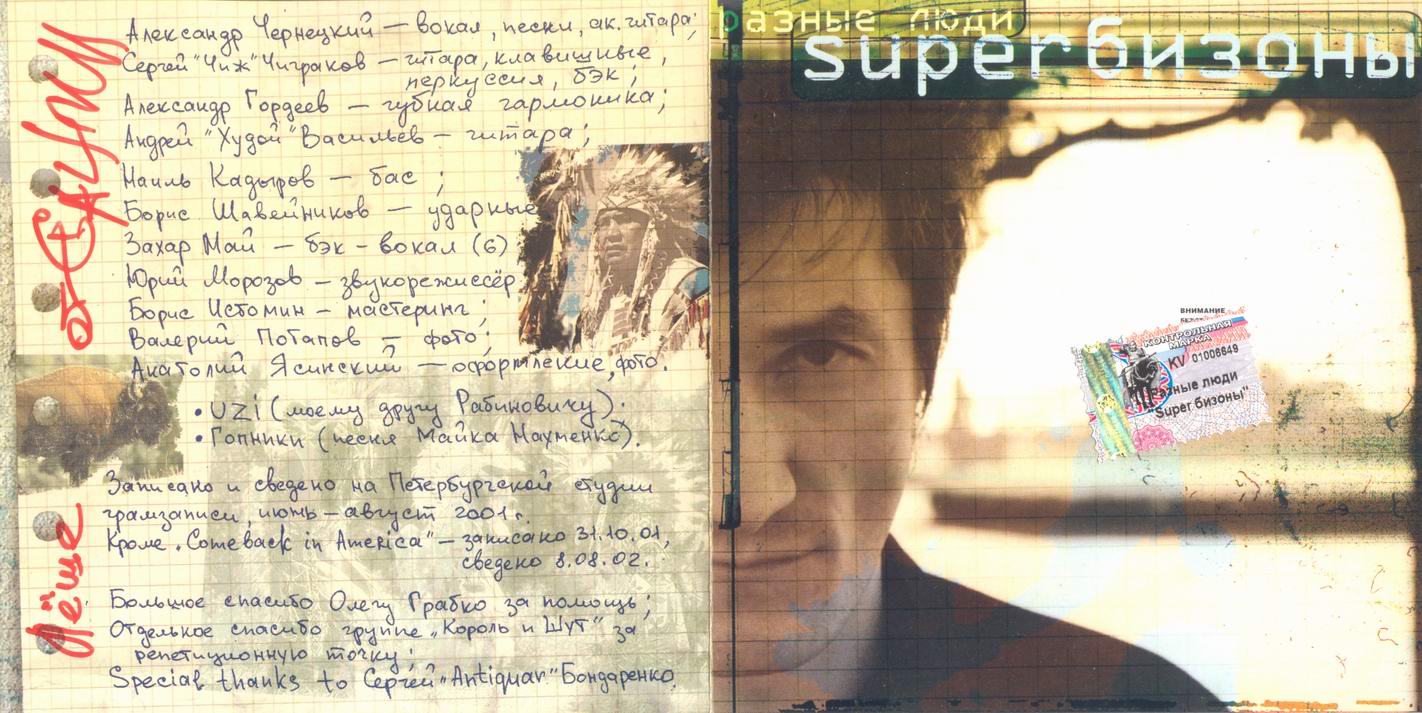 Александр Чернецкий — вокал, песни, ак. гитара;
Сергей "Чиж" Чиграков — гитара, клавишные,
перкуссия, бэк;
Александр Гордеев — губная гармоника;
Андрей "Худой" Васильев — гитара;
Наиль Кадыров — бас ;
Борис Шавейников — ударные
Захар Май — бэк-вокал (6)
Юрий Морозов — звукорежиссёр;
Борис Истомин — мастеринг ;
Валерий Потапов — фото ;
Анатолий Ясинский — оформление, фото.
• UZI (моему другу Рабиновичу);
• Гопники (песня Майка Науменко).
Записано и сведено на Петербургской студии
грамзаписи, июнь — август 2001 г.
Кроме „Comeback in America" — записано 31.10.01,
сведено 8.08.02.
Большое спасибо Олегу Грабко за помощь;
Отдельное спасибо группе „Король и Шут" за
репетиционную точку;
Special thanks to Сергей „Antiquar" Бондаренко.
Лёше
разные люди
super бизоны
ВНИМАНИЕ
КОНТРОЛЬНАЯ
МАРКА
KV 01006649
Разные люди
"Super бизоны"